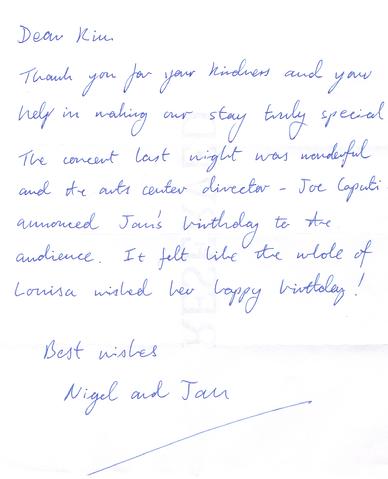 Dear Kim
Thank you for your kindness and your
help in making our stay truly special
The concert last night was wonderful
and the arts center director - Joe Caputi
announced Jan's birthday to the
audience. It felt like the whole of
Louisa wished her happy birthday!
Best wishes
Nigel and Jan